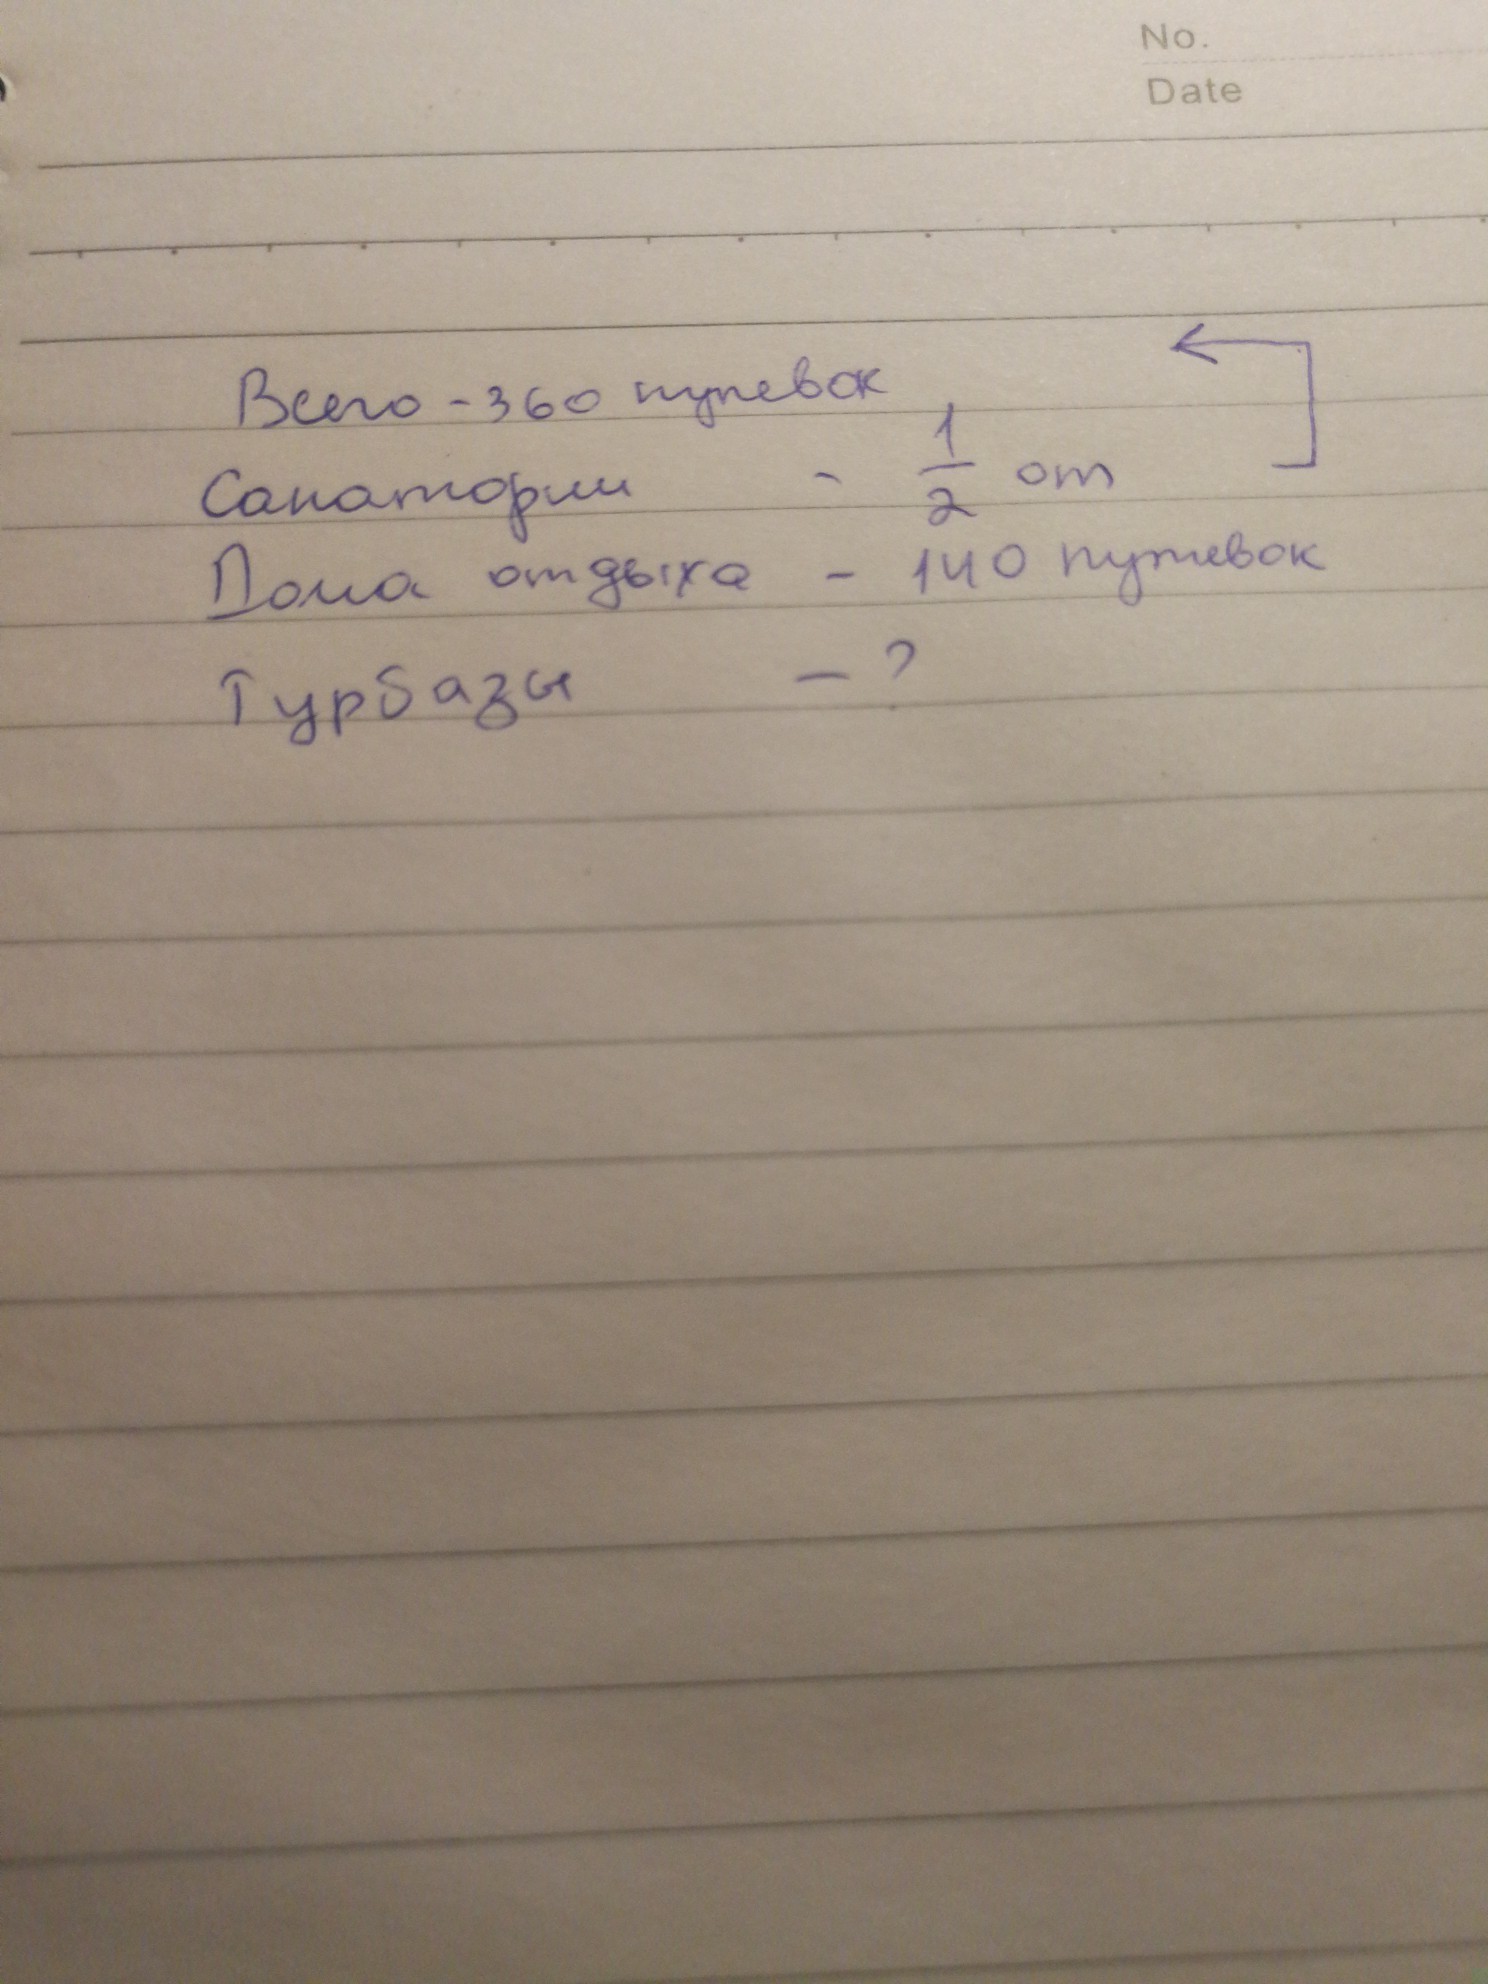 No.
Date
Всего - 360 путевок
Санатории - 1/2 от
Дома отдыха - 140 путевок
Турбазы - ?